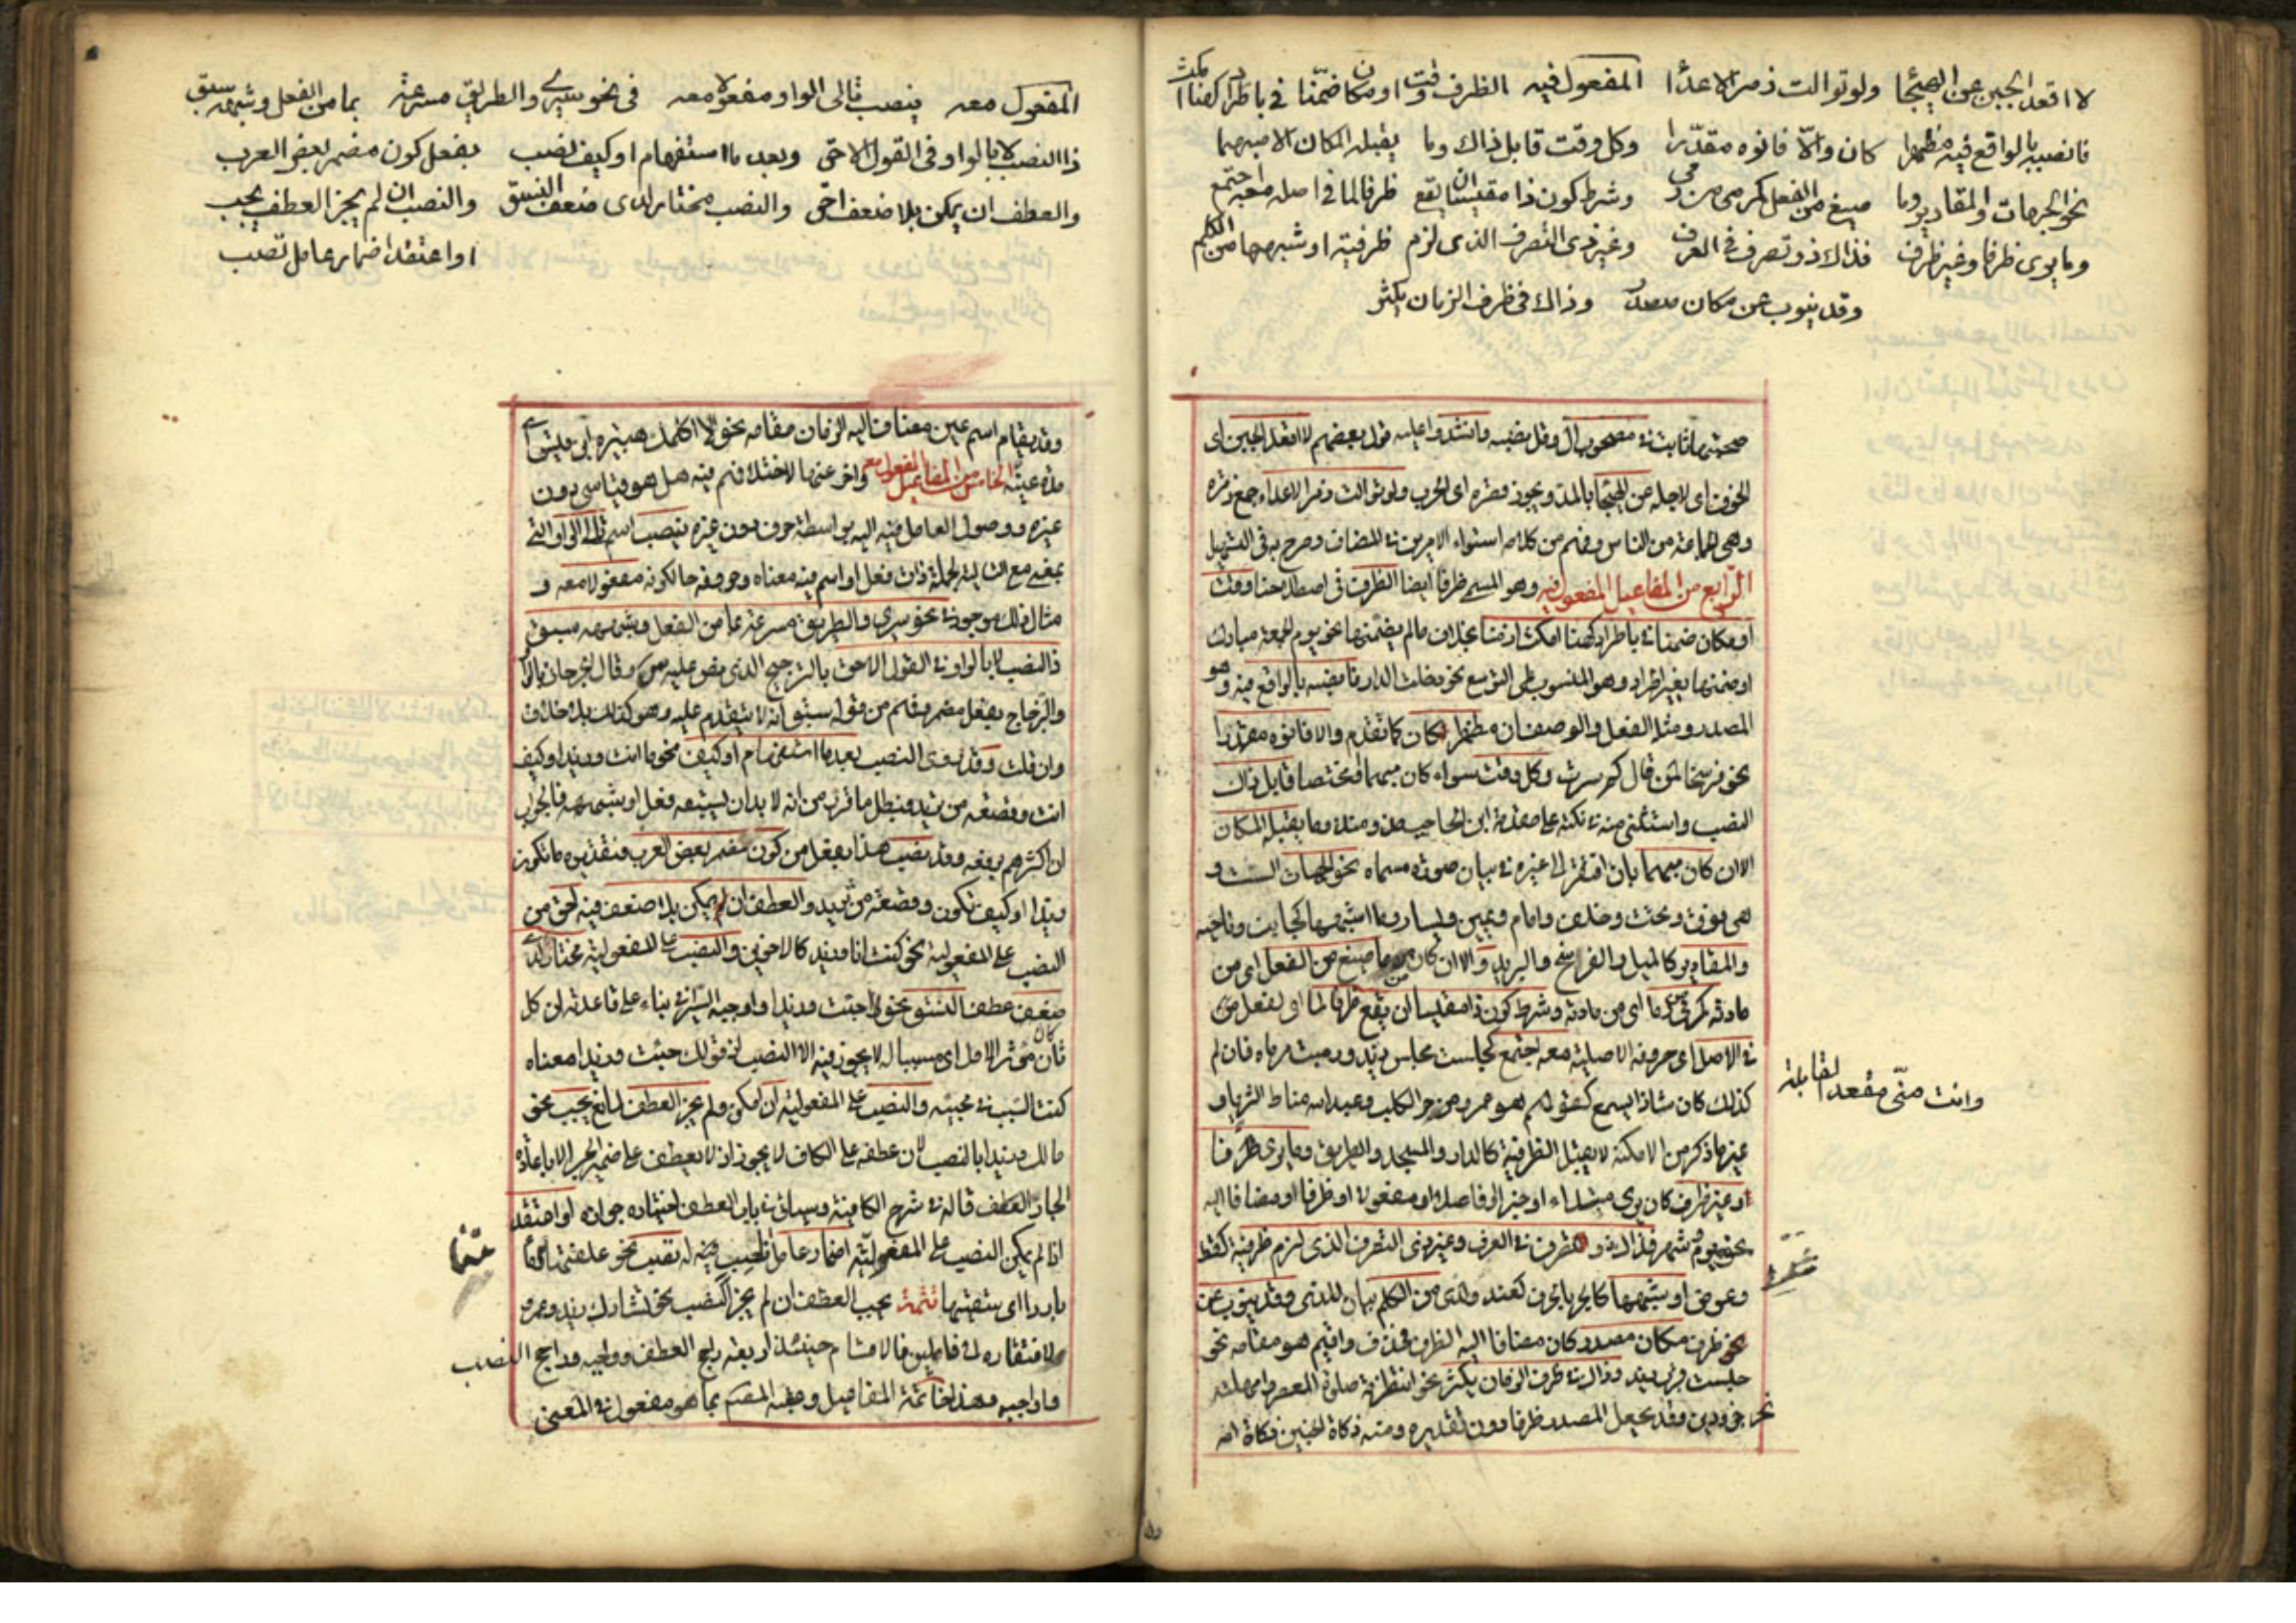 لا اقعد الجبن عن الهيجا ولو توالت زمر الاعدا المفعول فيه الظرف وقت او مكان ضمنا في باطراد كهنا امكث
فانصبه بالواقع فيه مظهرا كان والا فانوه مقدرا وكل وقت قابل ذاك وما يقبله المكان الا مبهما
نحو الجهات والمقادير وما صيغ من الفعل كرمى من رمى وشرط كون ذا مقيسا ان يقع ظرفا لما في اصله معه اجتمع
وما يرى ظرفا وغير ظرف فذاك ذو تصرف في العرف وغير ذي التصرف الذى لزم ظرفية او شبهها من الكلم
وقد ينوب عن مكان مصدر وذاك في ظرف الزمان يكثر
وقل نصبه وانشدوا عليه قول بعضهم لا اقعد الجبن اى
الخوف اى لاجله عن الهيجا بالمد ويجوز قصره اى الحرب ولو توالت زمر الاعداء جمع زمرة
وهى الجماعة من الناس وفهم من كلامه استواء الامرين في المضاف وصرح به في التسهيل
الرابع من المفاعيل المفعول فيه وهو المسمى ظرفا ايضا الظرف في اصطلاحنا وقت
او مكان ضمنا في باطراد كهنا امكث ازمنا بخلاف ما لم يضمنها نحو يوم الجمعة مبارك
او ضمنها بغير اطراد وهو المنسوب على التوسع نحو دخلت الدار فانصبه بالواقع فيه وهو
المصدر ومثله الفعل والوصف ان مظهرا كان كما تقدم والا فانوه مقدرا
نحو فرسخا لمن قال كم سرت وكل وقت سواء كان مبهما او مختصا قابل ذاك
النصب واستثنى منه في نكته على مقدمة ابن الحاجب مذ ومنذ وما يقبله المكان
الا ان كان مبهما بان افتقر الى غيره في بيان صورة مسماه نحو الجهات الست و
هى فوق وتحت وخلف وامام ويمين ويسار وما اشبهها كجانب وناحية
والمقادير كالميل والفرسخ والبريد والا ان كان ما صيغ من الفعل اى من
مادته كرمى من رمى اى من مادته وشرط كون ذا مقيسا ان يقع ظرفا لما اى لفعل
في الاصل اى حروفه الاصلية معه اجتمع كجلست مجلس زيد ورميت مرماه فان لم
كذلك كان شاذا يسمع كقولهم هو عمرو مزجر الكلب وعبد الله مناط الثريا و
غير ما ذكر من الامكنة لا يقبل الظرفية كالدار والمسجد والطريق وما يرى ظرفا
او غير ظرف كان يرى مبتداء او خبرا او فاعلا او مفعولا او ظرفا او مضافا اليه
نحو يوم وشهر فذاك ذو تصرف في العرف وغير ذى التصرف الذى لزم ظرفية كقط
وعوض او شبهها كالجر بالحرف كعند ولدى من الكلم بيان للذى وقد ينوب عن
ظرف مكان مصدر كان مضافا اليه الظرف فحذف واقيم هو مقامه نحو
جلست قرب زيد وذاك في ظرف الزمان يكثر نحو انتظرته صلوة العصر وامهلته
نحر جزورين وقد يجعل المصدر ظرفا دون تقديره ومنه ذكاة الجنين ذكاة امه
وانت منى مقعد القابلة
المفعول معه ينصب تالى الواو مفعولا معه في نحو سيرى والطريق مسرعة بما من الفعل وشبهه سبق
ذا النصب لا بالواو في القول الاحق وبعد ما استفهام او كيف نصب بفعل كون مضمر بعض العرب
والعطف ان يمكن بلا ضعف احق والنصب مختار لدى ضعف النسق والنصب ان لم يجز العطف يجب
او اعتقد اضمار عامل تصب
وقد يقام اسم عين مضاف اليه الزمان مقامه نحو لا اكلمك هبيرة
مدة غيبته الخامس من المفاعيل المفعول معه واخر عنها لاختلافهم فيه هل هو قياسى دون
غيره ووصول العامل فيه اليه بواسطة حرف دون غيره ينصب اسم تالى الواو التى
بمعنى مع التالية لجملة ذات فعل او اسم فيه معناه وحروفه حالكونه مفعولا معه و
مثال ذلك موجود في نحو سيرى والطريق مسرعة بما من الفعل وشبهه سبق
ذا النصب لا بالواو في القول الاحق بالترجيح الذى نص عليه س وقال الجرجاني بالواو
والزجاج بفعل مضمر وفهم من قوله سبق انه لا يتقدم عليه وهو كذلك بلا خلاف
وان قلت وقد روى النصب بعد ما استفهام او كيف نحو ما انت وزيدا وكيف
انت وقصعة من ثريد فبطل ما قرر من انه لا بد ان يسبقه فعل او شبهه فالجواب
ان اكثرهم يرفعه وقد نصب هذا بفعل من كون مضمر بعض العرب فتقديره ما تكون
وزيدا او كيف تكون وقصعة من ثريد والعطف ان يمكن بلا ضعف فيه احق من
النصب على المفعولية نحو كنت انا وزيد كالاخوين والنصب على المفعولية مختار لدى
ضعف عطف النسق نحو جئت وزيدا واوجبه السيرافي بناء على قاعدته ان كل
ثان كان مؤثرا للاول اى مسببا له لا يجوز فيه الا النصب اذ قولك جئت وزيدا معناه
كنت السبب في مجيئه والنصب على المفعولية ان امكن ولم يجز العطف لمانع يجب نحو
مالك وزيدا بالنصب لان عطفه على الكاف لا يجوز اذ لا يعطف على ضمير الجر الا باعادة
الجار العطف قاله في شرح الكافية وسيأتي في باب العطف اختياره جوازه او اعتقد
اذا لم يمكن النصب على المفعولية اضمار عاملا تصب نحو علفتها تبنا وماء
باردا اى سقيتها تتمة يجب العطف ان لم يجز النصب نحو تشارك زيد وعمرو
لافتقاره الى فاعلين فالاقسام حينئذ اربعة راجح العطف وواجبه وراجح النصب
وواجبه وهذا خاتمة المفاعيل وعقبه المصنف بما هو مفعول في المعنى